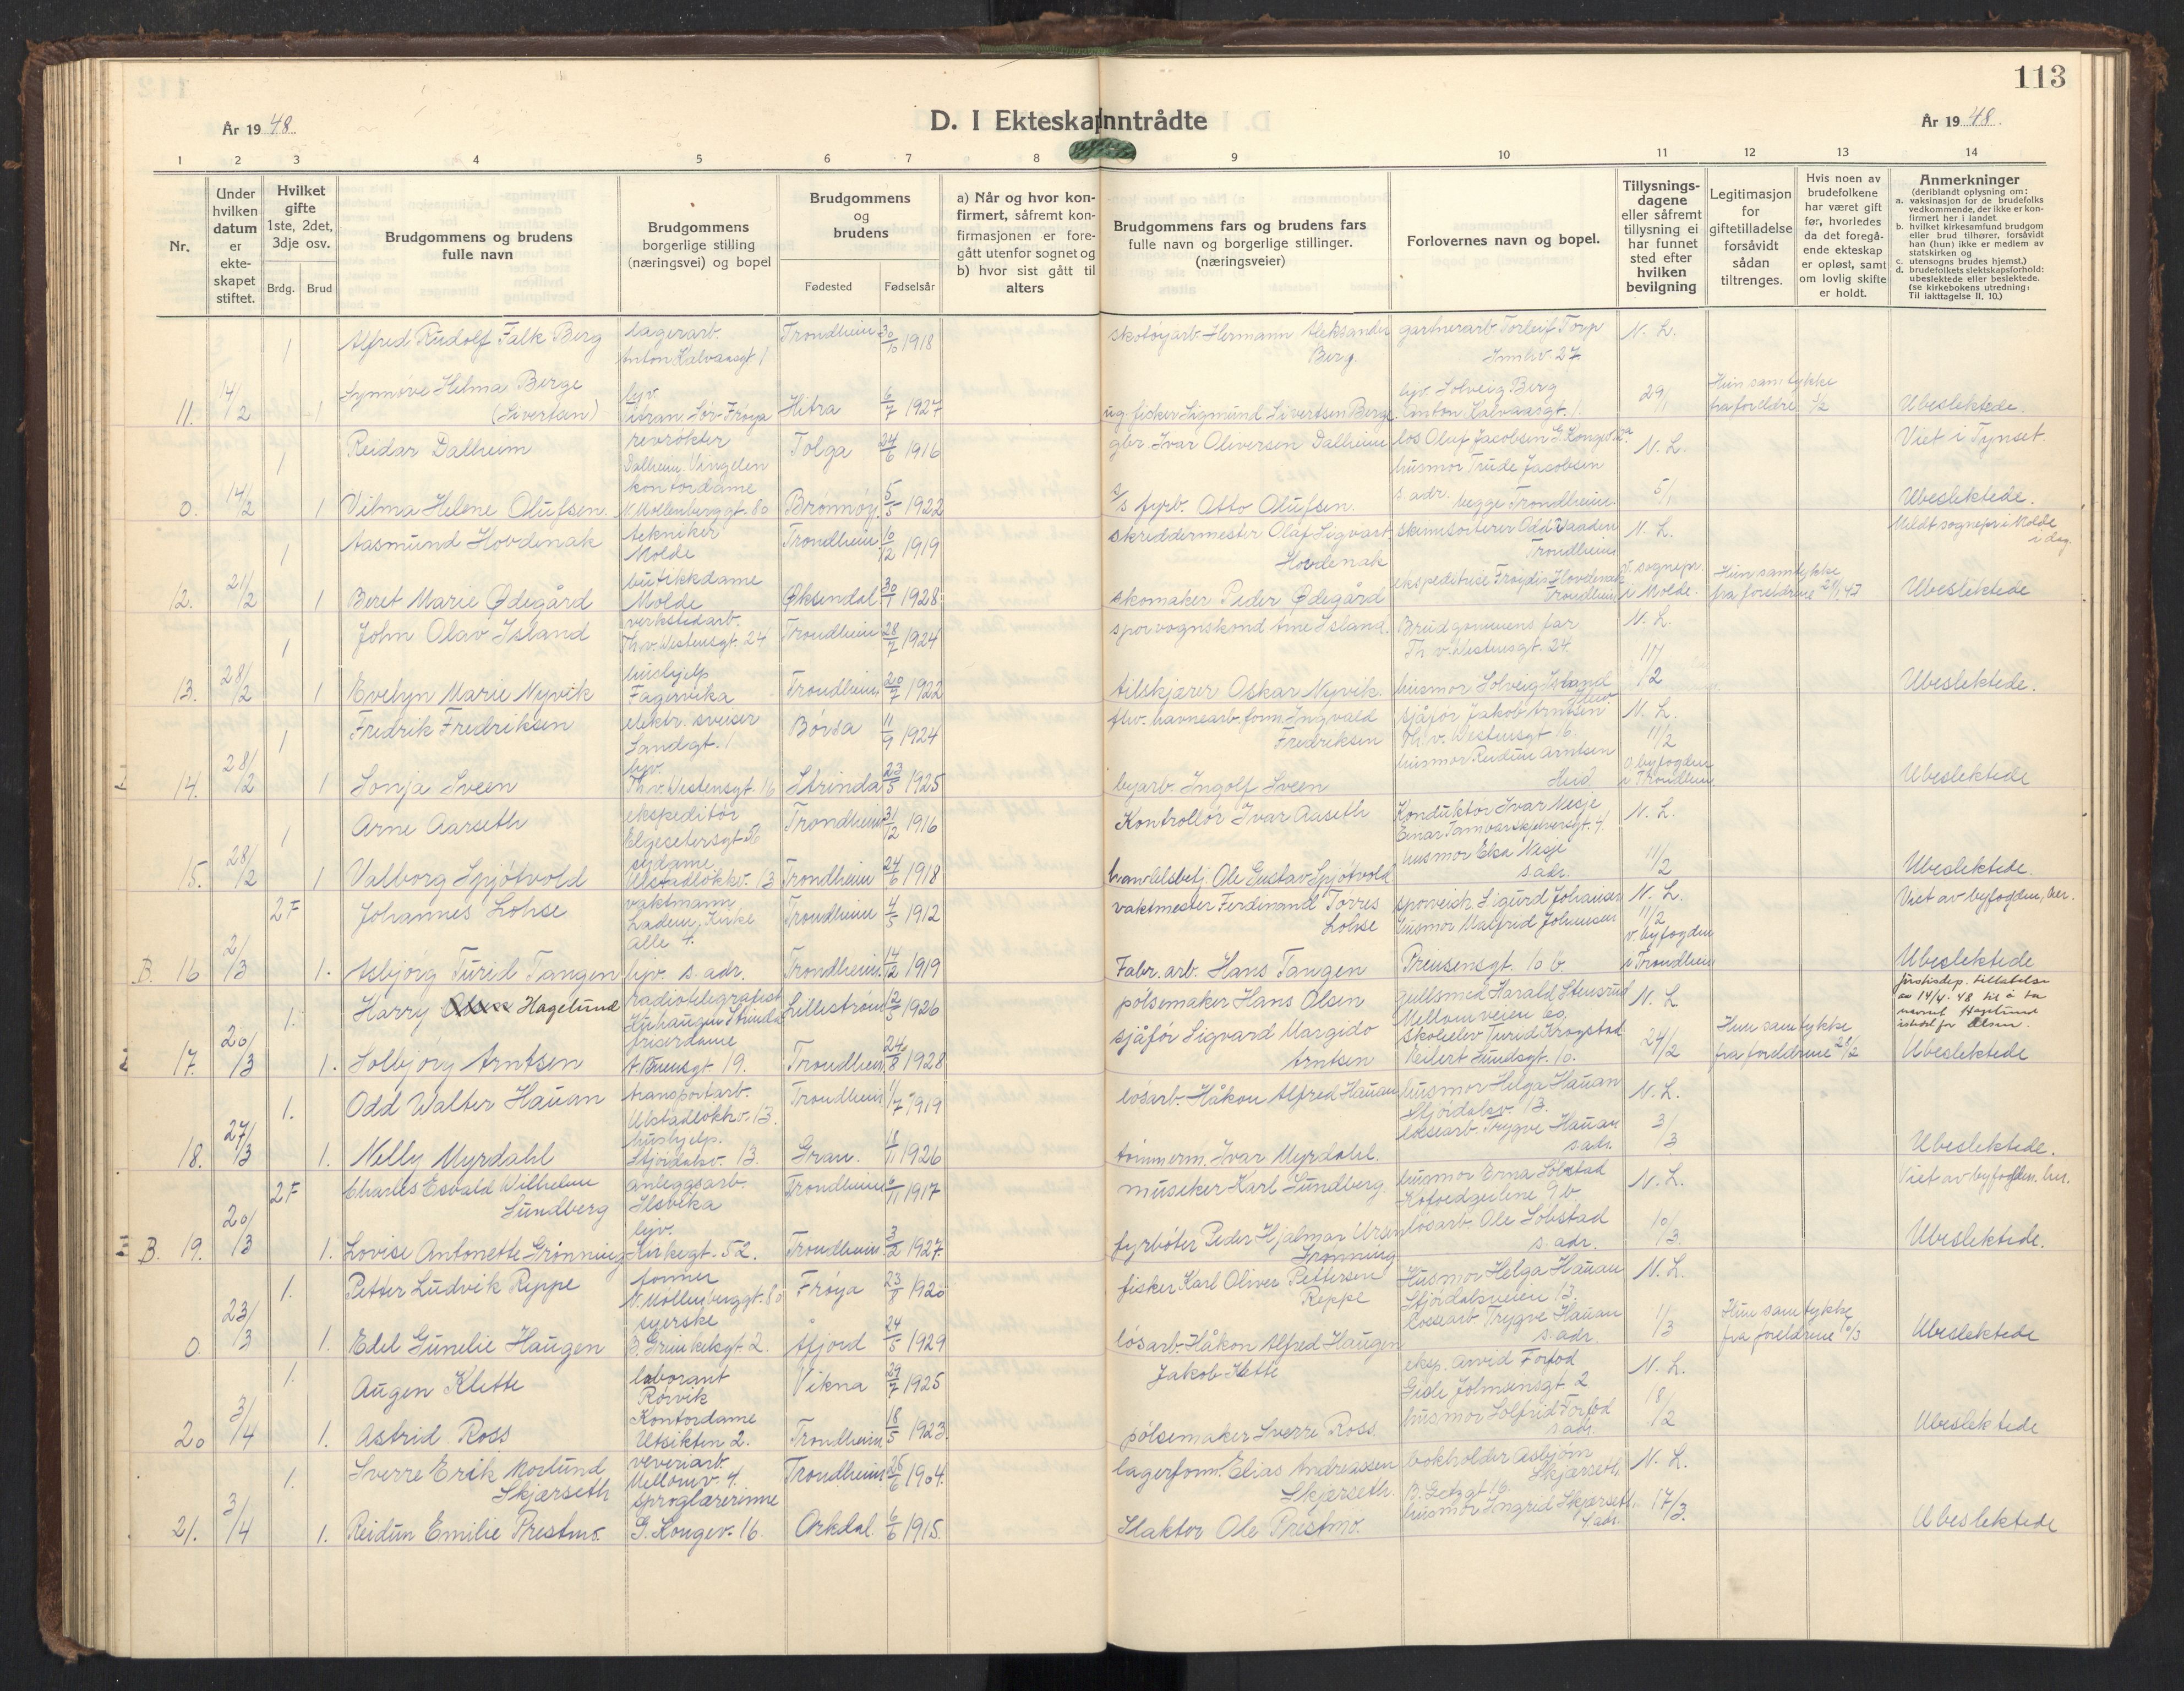 113
År 19 48.
D. I Ekteskap inntrådte
År 19 48.
1 2 3 4 5 6 7 8 9 10 11 12 13 14
Nr.
Under hvilken datum er ekteskapet stiftet.
Hvilket gifte 1ste, 2det, 3dje osv.
Brdg. Brud
Brudgommens og brudens fulle navn
Brudgommens borgerlige stilling (næringsvei) og bopel
Brudgommens og brudens
Fødested Fødselsår
a) Når og hvor konfirmert, såfremt konfirmasjonen er foregått utenfor sognet og b) hvor sist gått til alters
Brudgommens fars og brudens fars fulle navn og borgerlige stillinger. (næringsveier)
Forlovernes navn og bopel.
Tillysningsdagene eller såfremt tillysning ei har funnet sted efter hvilken bevilgning
Legitimasjon for giftetilladelse forsåvidt sådan tiltrenges.
Hvis noen av brudefolkene har været gift før, hvorledes da det foregående ekteskap er opløst, samt om lovlig skifte er holdt.
Anmerkninger
(deriblandt oplysning om:
a. vaksinasjon for de brudefolks vedkommende, der ikke er konfirmert her i landet.
b. hvilket kirkesamfund brudgom eller brud tilhører, forsåvidt han (hun) ikke er medlem av statskirken og
c. utensogns brudes hjemst.)
d. brudefolkets slektskapsforhold: ubeslektede eller beslektede.
(se kirkebokens utredning: Til iakttagelse II. 10.)
1 Alfred Rudolf Falk Berg lagerarb. Anton Kalvaasgt. 1 Trondheim 30/10 1918 skotøyarb. Hermann Aleksander Berg. gartnerarb. Torleif Torp Innhv. 27. N. L.
11. 14/2 1 Synnøve Helma Berge (Sivertsen) hjv. Sør-Frøya Hitra 6/7 1927 ug. fisker Sigmund Sivertsen Berge hjv. Solveig Berg Anton Kalvaasgt. 1. 29/1 Hun samtykke fra foreldre Ubeslektede.
1 Reidar Dalheim revrøkter Dalheim. Vingelen Tolga 24/6 1916 gbr. Ivar Oliversen Dalheim los Olaf Jacobsen N. L. Viet i Tynset.
0. 14/2 1 Vilma Helene Olufsen. kontordame N. Møllenberggt. 80 Brønnøy 5/5 1922 s/s fyrb. Otto Olufsen. husmor Trude Jacobsen s. adr. begge Trondheim. 5/1 Ubeslektede.
1 Aasmund Hovdenak tekniker Molde Trondheim 10/12 1919 skreddermester Olaf Sigvart Hovdenak Odd Vaaden Trondheim N. L. Meldt sognepr. i Molde i dag.
12. 21/2 1 Beret Marie Ødegård butikkdame Molde Øksendal 30/1 1928 skomaker Peder Ødegård ekspeditrise Frøydis Hovdenak Trondheim v. sognepr. i Molde. Hun samtykke fra foreldrene Ubeslektede
1 John Olav Island verkstedarb. Th. v. Westensgt. 24 Trondheim 28/7 1924 sporvognskond. Arne Island. Brudgommens far Th. v. Westensgt. 24. N. L.
13. 28/2 1 Evelyn Marie Nyvik hushjelp Fagervika Trondheim 20/7 1922 tilskjærer Oskar Nyvik. husmor Solveig Island 11/2 Ubeslektede.
1 Fredrik Fredriksen elektr. sveiser Sandgt. 1 Børsa 11/9 1924 fhv. havnearb.form. Ingvald Fredriksen sjåfør Jakob Arntsen Th. v. Westensgt. 16. N. L. 11/2
14. 28/2 1 Sonja Sveen hjv. Th. v. Westensgt. 16 Strinda 23/5 1925 byarb. Ingolf Sveen husmor Reidun Arntsen v. byfogden i Trondheim Ubeslektede
1 Arne Aarseth ekspeditør Elgesetersgt. Trondheim 31/12 1916 Kontrollør Ivar Aaseth Konduktør Ivar Nesje Einar Tamvarskjelversgt. 4. N. L.
15. 28/2 1 Valborg Spjøtvold sydame Ulstadløkkv. 13 Trondheim 24/6 1918 handelsbetj. Ole Gustav Spjøtvold husmor Elsa Nesje s. adr. 11/2 Ubeslektede.
2F Johannes Lohse vaktmann Ladem. Kirke alle 4. Trondheim 4/5 1912 vaktmester Ferdinand Tørres Lohse Sigurd Johansen N. L. 11/2 Viet av byfogden, her.
B. 16 2/3 1. Asbjørg Turid Tangen hjv. s. adr. Trondheim. 14/2 1919 Fabr. arb. Hans Tangen husmor Malfrid Johansen Preusensgt. 10 b. v. byfogden i Trondheim Ubeslektede
1. Harry Olsen Hagelund radiotelegrafist Strinda Lillestrøm 12/5 1926 pølsemaker Hans Olsen gullsmed Harald Stensrud Mellomveien 60, N. L. Justisdep. tillatelse av 14/4. 48 til å ta navnet Hagelund istedf. for Olsen.
17. 20/3 1. Solbjørg Arntsen friserdame A. Buensgt 19. Trondheim 24/8 1928 sjåfør Sigvard Margido Arntsen Skoleelev Turid Krogstad Reilert Lundsgt. 10. 24/2 Hun samtykke fra foreldrene 28/2 Ubeslektede
1. Odd Walter Hauan transportarb. Ulstadløkkv. 13. Trondheim 1/7 1919 løsarb. Håkon Alfred Hauan husmor Helga Hauan Stjørdalsv. 13. N. L.
18. 27/3 1. Nelly Myrdahl hushjelp. Stjørdalsv. 13. Gran. 18/11 1926 tømmerm. Ivar Myrdahl. losearb. Trygve Hauan s. adr. 3/3 Ubeslektede.
2F Charles Esvald Wilhelm Sundberg anleggsarb. Ilsvika Trondheim 6/11 1917 musiker Karl Sundberg. husmor Erna Solstad 9 b. N. L. Viet av byfogden. her.
B. 19. 20/3 1. Lovise Antonette Grønning hjv. Kirkegt. 52. Trondheim. 3/2 1927. fyrbøter Peder Hjalmar Grønning løsarb. Ole Solstad s. adr. 10/3. Ubeslektede.
1. Petter Ludvik Reppe former N. Møllenberggt. 80 Frøya 23/8 1920 fisker Karl Oliver Pettersen Reppe Husmor Helga Hauan Stjørdalsveien 13. N. L.
0. 23/3 1. Edel Gunelie Haugen syerske B. Grimkelsgt. 2. Åfjord 24/5 1929 løsarb. Håkon Alfred Haugen Losearb. Trygve Hauan s. adr. 1/3 Hun samtykke fra foreldrene 10/3 Ubeslektede
1. Augen Klette laborant Rørvik Vikna 29/7 1925 Jakob Klette eksp. Arvid Forfod Gisle Johnsensgt 2 N. L.
20 3/4 1. Astrid Ross Kontordame Utsikten 2. Trondheim 18/5 1923. pølsemaker Sverre Ross. husmor Solfrid Forfod s. adr. 18/2 Ubeslektede
1. Sverre Erik Morlund Skjærseth veveriarb. Mellomv. 4. Trondheim 26/6 1904. lagerform. Elias Andreassen Skjærseth. bokholder Asbjørn Skjærseth. B. Getzgt 16. N. L.
21. 3/4 1. Reidun Emilie Prestmo. sproglærerinne G. Kongev. 16. Orkdal. 6/6 1915. Slaktor Ole Prestmo. husmor Ingrid Skjærseth. s. adr. 17/3. Ubeslektede